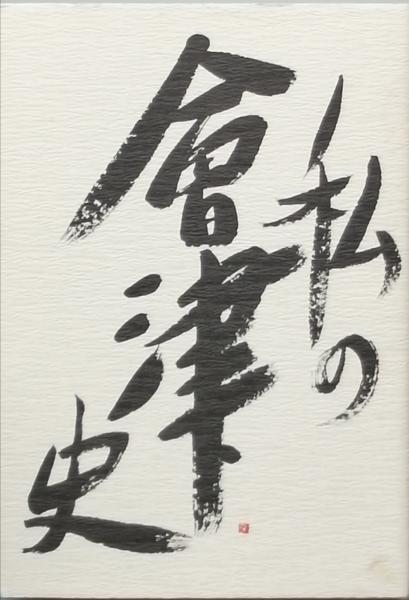 私の
會津
史